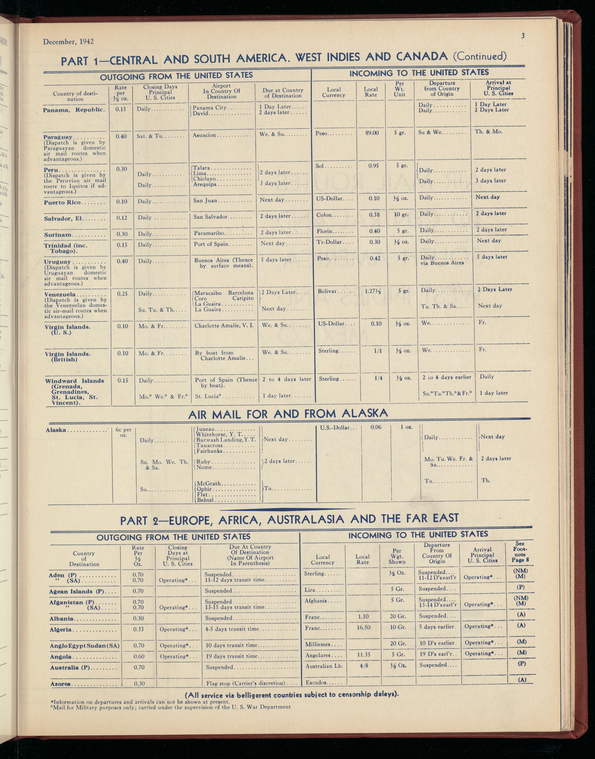 December, 1942
3
PART 1—CENTRAL AND SOUTH AMERICA. WEST INDIES AND CANADA (Continued)
OUTGOING FROM THE UNITED STATES INCOMING TO THE UNITED STATES
Country of desti-nation | Rate per ½ oz. | Closing Days Principal U. S. Cities | Airport In Country Of Destination | Due at Country of Destination | Local Currency | Local Rate | Per Wt. Unit | Departure from Country of Origin | Arrival at Principal U. S. Cities
Panama, Republic. 0.15 Daily Panama City 1 Day Later Daily 1 Day Later
David 2 days later Daily 2 Days Later
Paraguay 0.40 Sat. & Tu. Asuncion We. & Su. Peso 89.00 5 gr. Su & We. Th. & Mo.
(Dispatch is given by
Paraguayan domestic
air mail routes when
advantageous.)
Peru 0.30 Talara Sol 0.95 5 gr.
(Dispatch is given by Daily Lima 2 days later Daily 2 days later
the Peruvian air mail Chiclayo
route to Iquitos if ad- Daily Arequipa 3 days later Daily 3 days later
vantageous.)
Puerto Rico 0.10 Daily San Juan Next day US-Dollar 0.10 ½ oz. Daily Next day
Salvador, El 0.12 Daily San Salvador 2 days later Colon 0.38 10 gr. Daily 2 days later
Surinam 0.30 Daily Paramaribo 2 days later Florin 0.40 5 gr. Daily 2 days later
Trinidad (inc. 0.15 Daily Port of Spain Next day Tr-Dollar 0.30 ½ oz. Daily Next day
Tobago).
Uruguay 0.40 Daily Buenos Aires (Thence 5 days later Peso 0.42 5 gr. Daily 5 days later
(Dispatch is given by by surface means). via Buenos Aires
Uruguayan domestic
air mail routes when
advantageous.)
Venezuela 0.25 Daily Maracaibo Barcelona 2 Days Later Bolivar 1.27½ 5 gr. Daily 2 Days Later
(Dispatch is given by Coro Caripito
the Venezuelan domes- La Guaira
tic air-mail routes when Su. Tu. & Th. La Guaira Next day Tu. Th. & Sa. Next day
advantageous.)
Virgin Islands. 0.10 Mo. & Fr. Charlotte Amalie, V. I. We. & Su. US-Dollar 0.10 ½ oz. We. Fr.
(U. S.)
Virgin Islands. 0.10 Mo. & Fr. By boat from We. & Su. Sterling 1/1 ½ oz. We. Fr.
(British) Charlotte Amalie
Windward Islands 0.15 Daily Port of Spain (Thence 2 to 4 days later Sterling 1/4 ½ oz. 2 to 4 days earlier Daily
(Grenada, by boat).
Grenadines,
St. Lucia, St. Mo.° We.° & Fr.° St. Lucia° 1 day later Su.°Tu.°Th.°&Fr.° 1 day later
Vincent).
AIR MAIL FOR AND FROM ALASKA
Alaska 6c per oz. Juneau U.S.-Dollar 0.06 1 oz.
Whitehorse, Y. T.
Daily Burwash Landing, Y.T. Next day Daily Next day
Tanacross
Fairbanks
Su. Mo. We. Th. Ruby 2 days later Mo. Tu. We. Fr. & 2 days later
& Sa. Nome Su.
McGrath Tu. Th.
Su. Ophir Tu.
Flat
Bethel
PART 2—EUROPE, AFRICA, AUSTRALASIA AND THE FAR EAST
OUTGOING FROM THE UNITED STATES INCOMING TO THE UNITED STATES
Country of Destination | Rate Per ½ Oz. | Closing Days at Principal U. S. Cities | Due At Country Of Destination (Name Of Airport In Parenthesis) | Local Currency | Local Rate | Per Wgt. Shown | Departure From Country Of Origin | Arrival Principal U. S. Cities | See Foot-note Page 8
Aden (P) 0.70 Suspended Sterling ½ Oz. Suspended (NM)
" (SA) 0.70 Operating* 11-12 days transit time 11-12 D'searl'r Operating* (M)
Aegean Islands (P) 0.70 Suspended Lira 5 Gr. Suspended (P)
Afganistan (P) 0.70 Suspended Afghanis 5 Gr. Suspended (NM)
" (SA) 0.70 Operating* 13-15 days transit time 13-14 D'searl'r Operating* (M)
Albania 0.30 Suspended Franc 1.10 20 Gr. Suspended (A)
Algeria 0.33 Operating* 4-5 days transit time Franc 16.50 10 Gr. 5 days earlier Operating* (A)
Anglo Egypt Sudan (SA) 0.70 Operating* 10 days transit time Milliemes 20 Gr. 10 D's earlier Operating* (M)
Angola 0.60 Operating* 19 days transit time Angolares 11.35 5 Gr. 19 D's earl'r. Operating* (M)
Australia (P) 0.70 Suspended Australian Lb. 4/8 ½ Oz. Suspended (P)
Azores 0.30 Flag stop (Carrier's discretion) Escudos (A)
(All service via belligerent countries subject to censorship delays).
*Information on departures and arrivals can not be shown at present.
°Mail for Military purposes only; carried under the supervision of the U. S. War Department